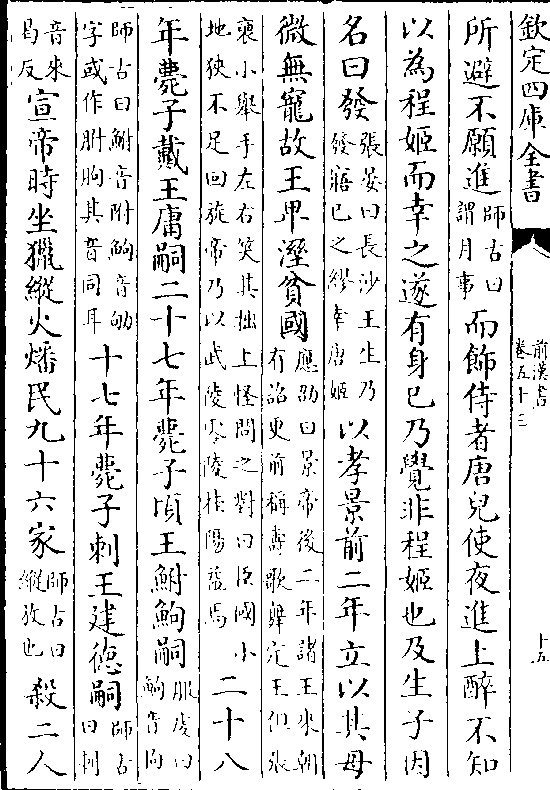 欽定四庫全書 前漢書卷五十三 十五
所避不願進師古曰謂月事而飾侍者唐兒使夜進上醉不知
以為程姬而幸之遂有身已乃覺非程姬也及生子因
名曰發張晏曰長沙王生乃發寤已之繆幸唐姬以孝景前二年立以其母
微無寵故王卑溼貧國應劭曰景帝後二年諸王來朝有詔更前稱壽歌舞定王但張
褏小舉手左右笑其拙上怪問之對曰臣國小地狹不足回旋帝乃以武陵零陵桂陽益焉二十八
年薨子戴王庸嗣二十七年薨子頃王鮒鮈嗣服虔曰鮈音拘
師古曰鮒音附鮈音劬字或作胕朐其音同耳十七年薨子刺王建德嗣師古曰刺
音來曷反宣帝時坐獵縱火燔民九十六家師古曰縱放也殺二人